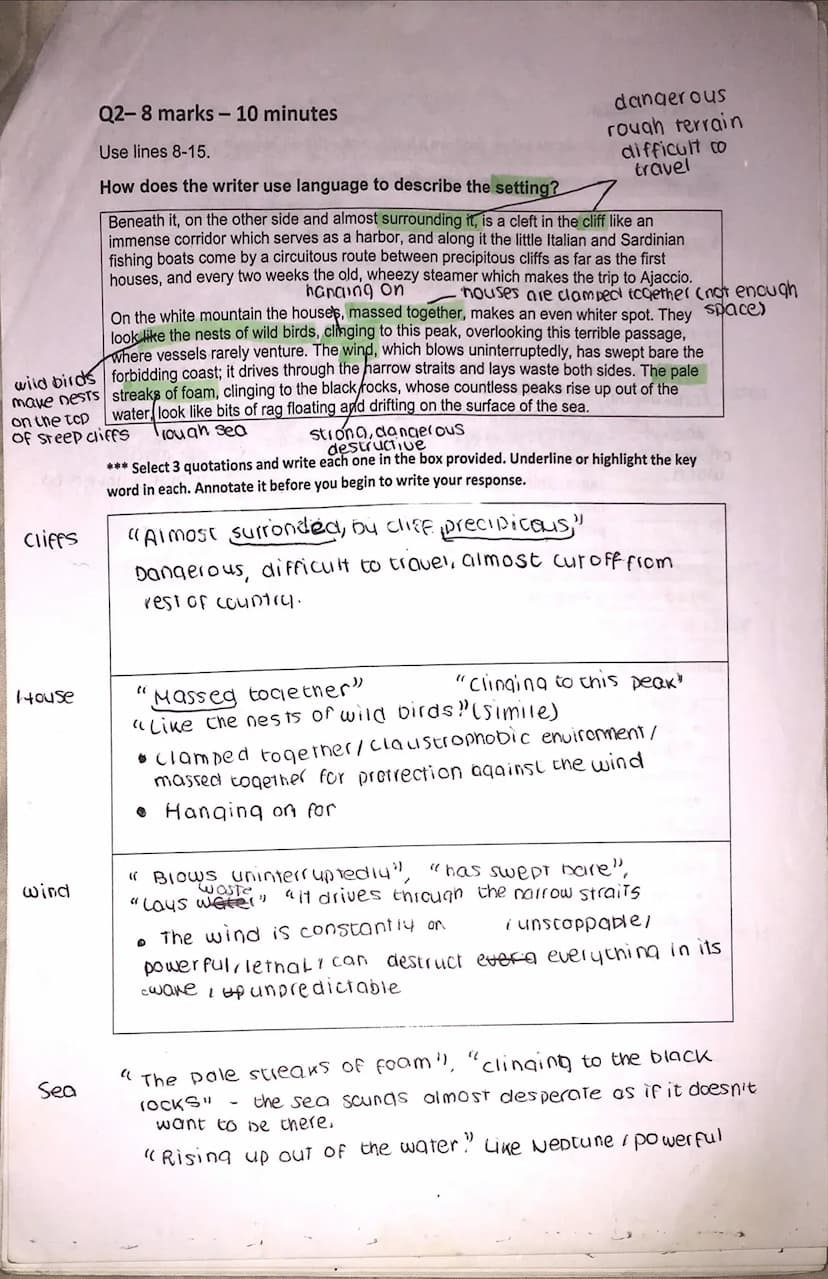 dangerous
rough terrain
difficult to
travel
Q2– 8 marks – 10 minutes
Use lines 8-15.
How does the writer use language to describe the setting?
Beneath it, on the other side and almost surrounding it, is a cleft in the cliff like an
immense corridor which serves as a harbor, and along it the little Italian and Sardinian
fishing boats come by a circuitous route between precipitous cliffs as far as the first
houses, and every two weeks the old, wheezy steamer which makes the trip to Ajaccio.
hanging on
houses are clamped together (not enough
space)
On the white mountain the houses, massed together, makes an even whiter spot. They
look like the nests of wild birds, clinging to this peak, overlooking this terrible passage,
where vessels rarely venture. The wind, which blows uninterruptedly, has swept bare the
forbidding coast; it drives through the narrow straits and lays waste both sides. The pale
streaks of foam, clinging to the black rocks, whose countless peaks rise up out of the
water, look like bits of rag floating and drifting on the surface of the sea.
wild birds
make nests
on the top
of steep cliffs
rough sea
strong, dangerous
destructive
*** Select 3 quotations and write each one in the box provided. Underline or highlight the key
word in each. Annotate it before you begin to write your response.
Cliffs
“Almost surronded, by cliff precipicous,”
Dangerous, difficult to travel, almost cut off from
rest of country.
House
“Massed together” “Clinging to this peak”
“Like the nests of wild birds.” (simile)
• Clamped together / claustrophobic environment /
massed together for protection against the wind
• Hanging on for
wind
“Blows uninterruptedly”, “has swept bare”,
waste
“Lays ” “it drives through the narrow straits
• The wind is constantly on / unstoppable /
powerful / lethal / can destruct everything in its
wake / unpredictable
Sea
“The pale streaks of foam”, “clinging to the black
rocks” - the sea sounds almost desperate as if it doesn't
want to be there.
“Rising up out of the water.” Like Neptune / powerful